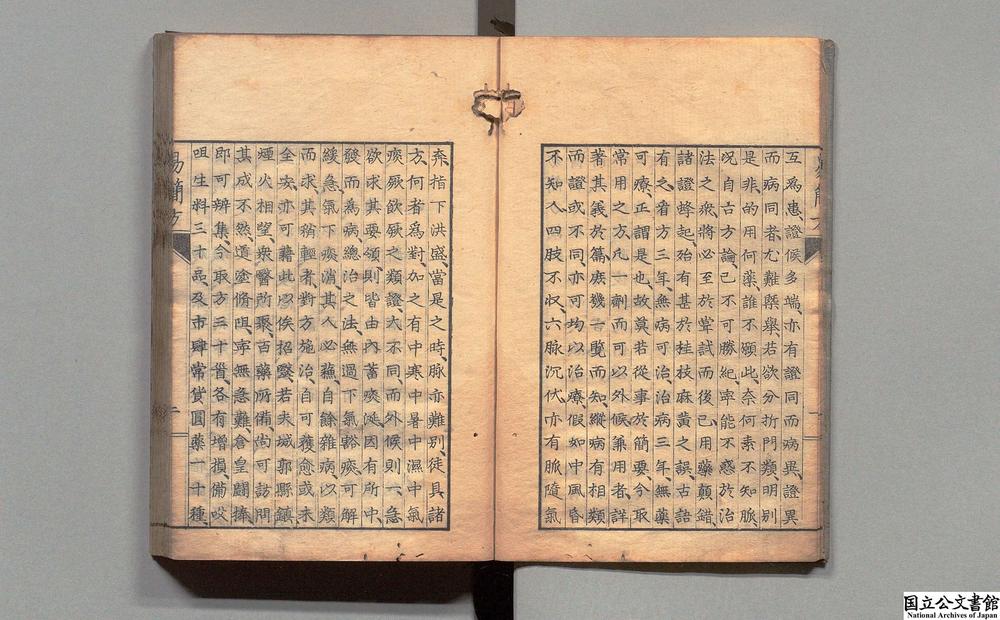 互爲患證候多端亦有證同而病異證異
而病同者尤難槩舉若欲分折門類明別
是非的用何藥誰不願此柰何素不知脈
况自古方論已不可勝紀寧能不惑於治
法之衆將必至於甞試而後已用藥顛錯
諸證蜂起殆有甚於桂枝麻黃之誤古語
有之看方三年無病可治病三年無藥
可療正謂是也故莫若從事於簡要今取
常用之方凡一劑而可以外候兼用者詳
著其義於篇庶幾一覽而知縱病有相類
而證或不同亦可均以治療假如中風昏
不知人四肢不収六脈沉伏亦有脈隨氣
奔指下洪盛當是之時脈亦難別徒具諸
方何者爲對加之有中寒中暑中濕中氣
痰厥飲厥之類證大不同而外候則一急
欲求其要領則皆由內蓄痰涎因有所中
發而爲病總治之法無過下氣豁痰可解
緩急氣下痰消其人必蘓自餘雜病以類
而求其稍輕者對方施治自可獲愈或未
全安亦可藉此以俟招醫若夫城郭縣鎮
煙火相望衆醫所聚百藥所備尚可訪問
其成不然道塗脩阻寜無急難倉皇鬬揍
即可辨集今取方三十首各有增損備㕮
咀生料三十品及市肆常貨圓藥一十種
易簡方
二
国立公文書館
National Archives of Japan